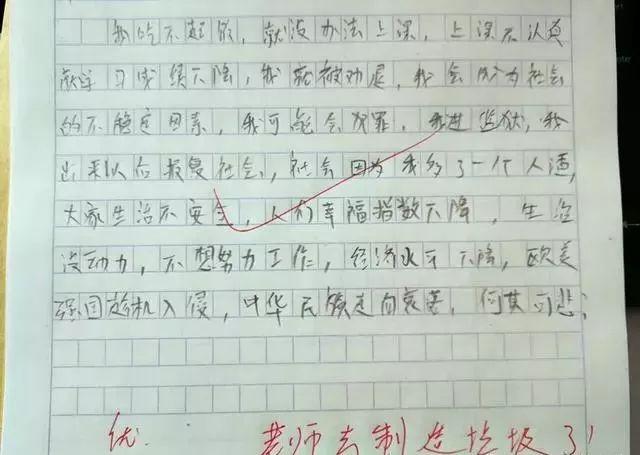 我吃不起饭，就没办法上课，上课不认真
就学习成绩下降，我就被劝退，我会成为社会
的不稳定因素，我可能会犯罪，我进监狱，我
出来以后报复社会，社会因为我多了一个人渣，
大家生活不安全，人们幸福指数下降，生活
没动力，不想努力工作，经济水平下降，欧美
强国趁机入侵，中华民族走向衰落，何其可悲；
优 老师去制造垃圾了！